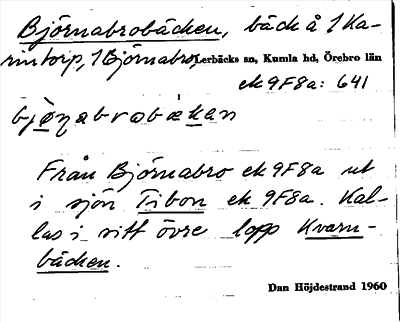 Björnabrobäcken, bäck å 1 Ka-
rintorp, 1 Björnabro, Lerbäcks sn, Kumla hd, Örebro län
ek 9F8a: 641
Från Björnabro ek 9F8a ut
i sjön Tibon ek 9F8a. Kal-
las i sitt övre lopp Kvarn-
bäcken.
Dan Höjdestrand 1960